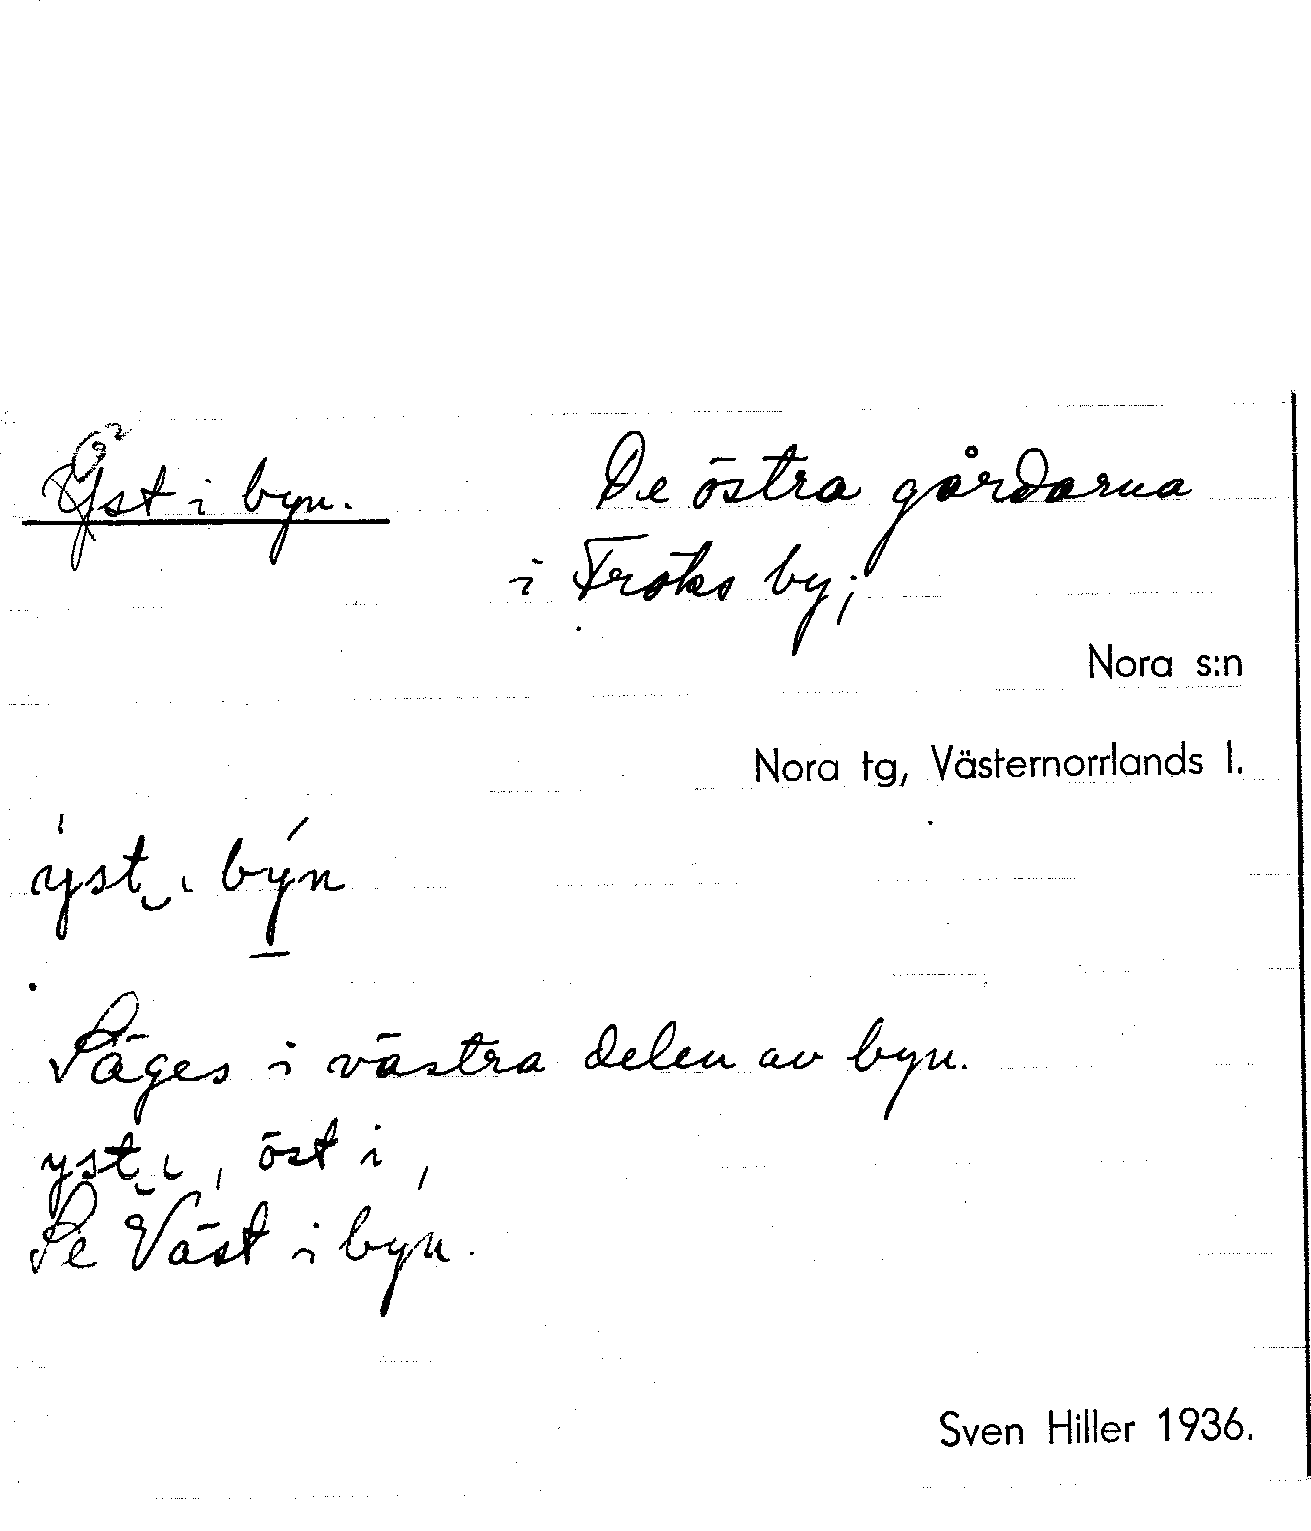 Yst i byn. De östra gårdarna
i Fröks by;
Nora s:n
Nora tg, Västernorrlands l.
yst ι býn
Säges i västra delen av byn.
yst ι, öst i,
Se Väst i byn.
Sven Hiller 1936.